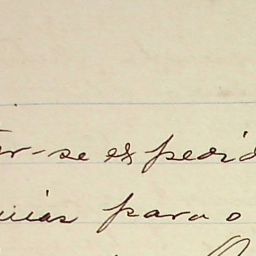 er-se expedid
uias para o